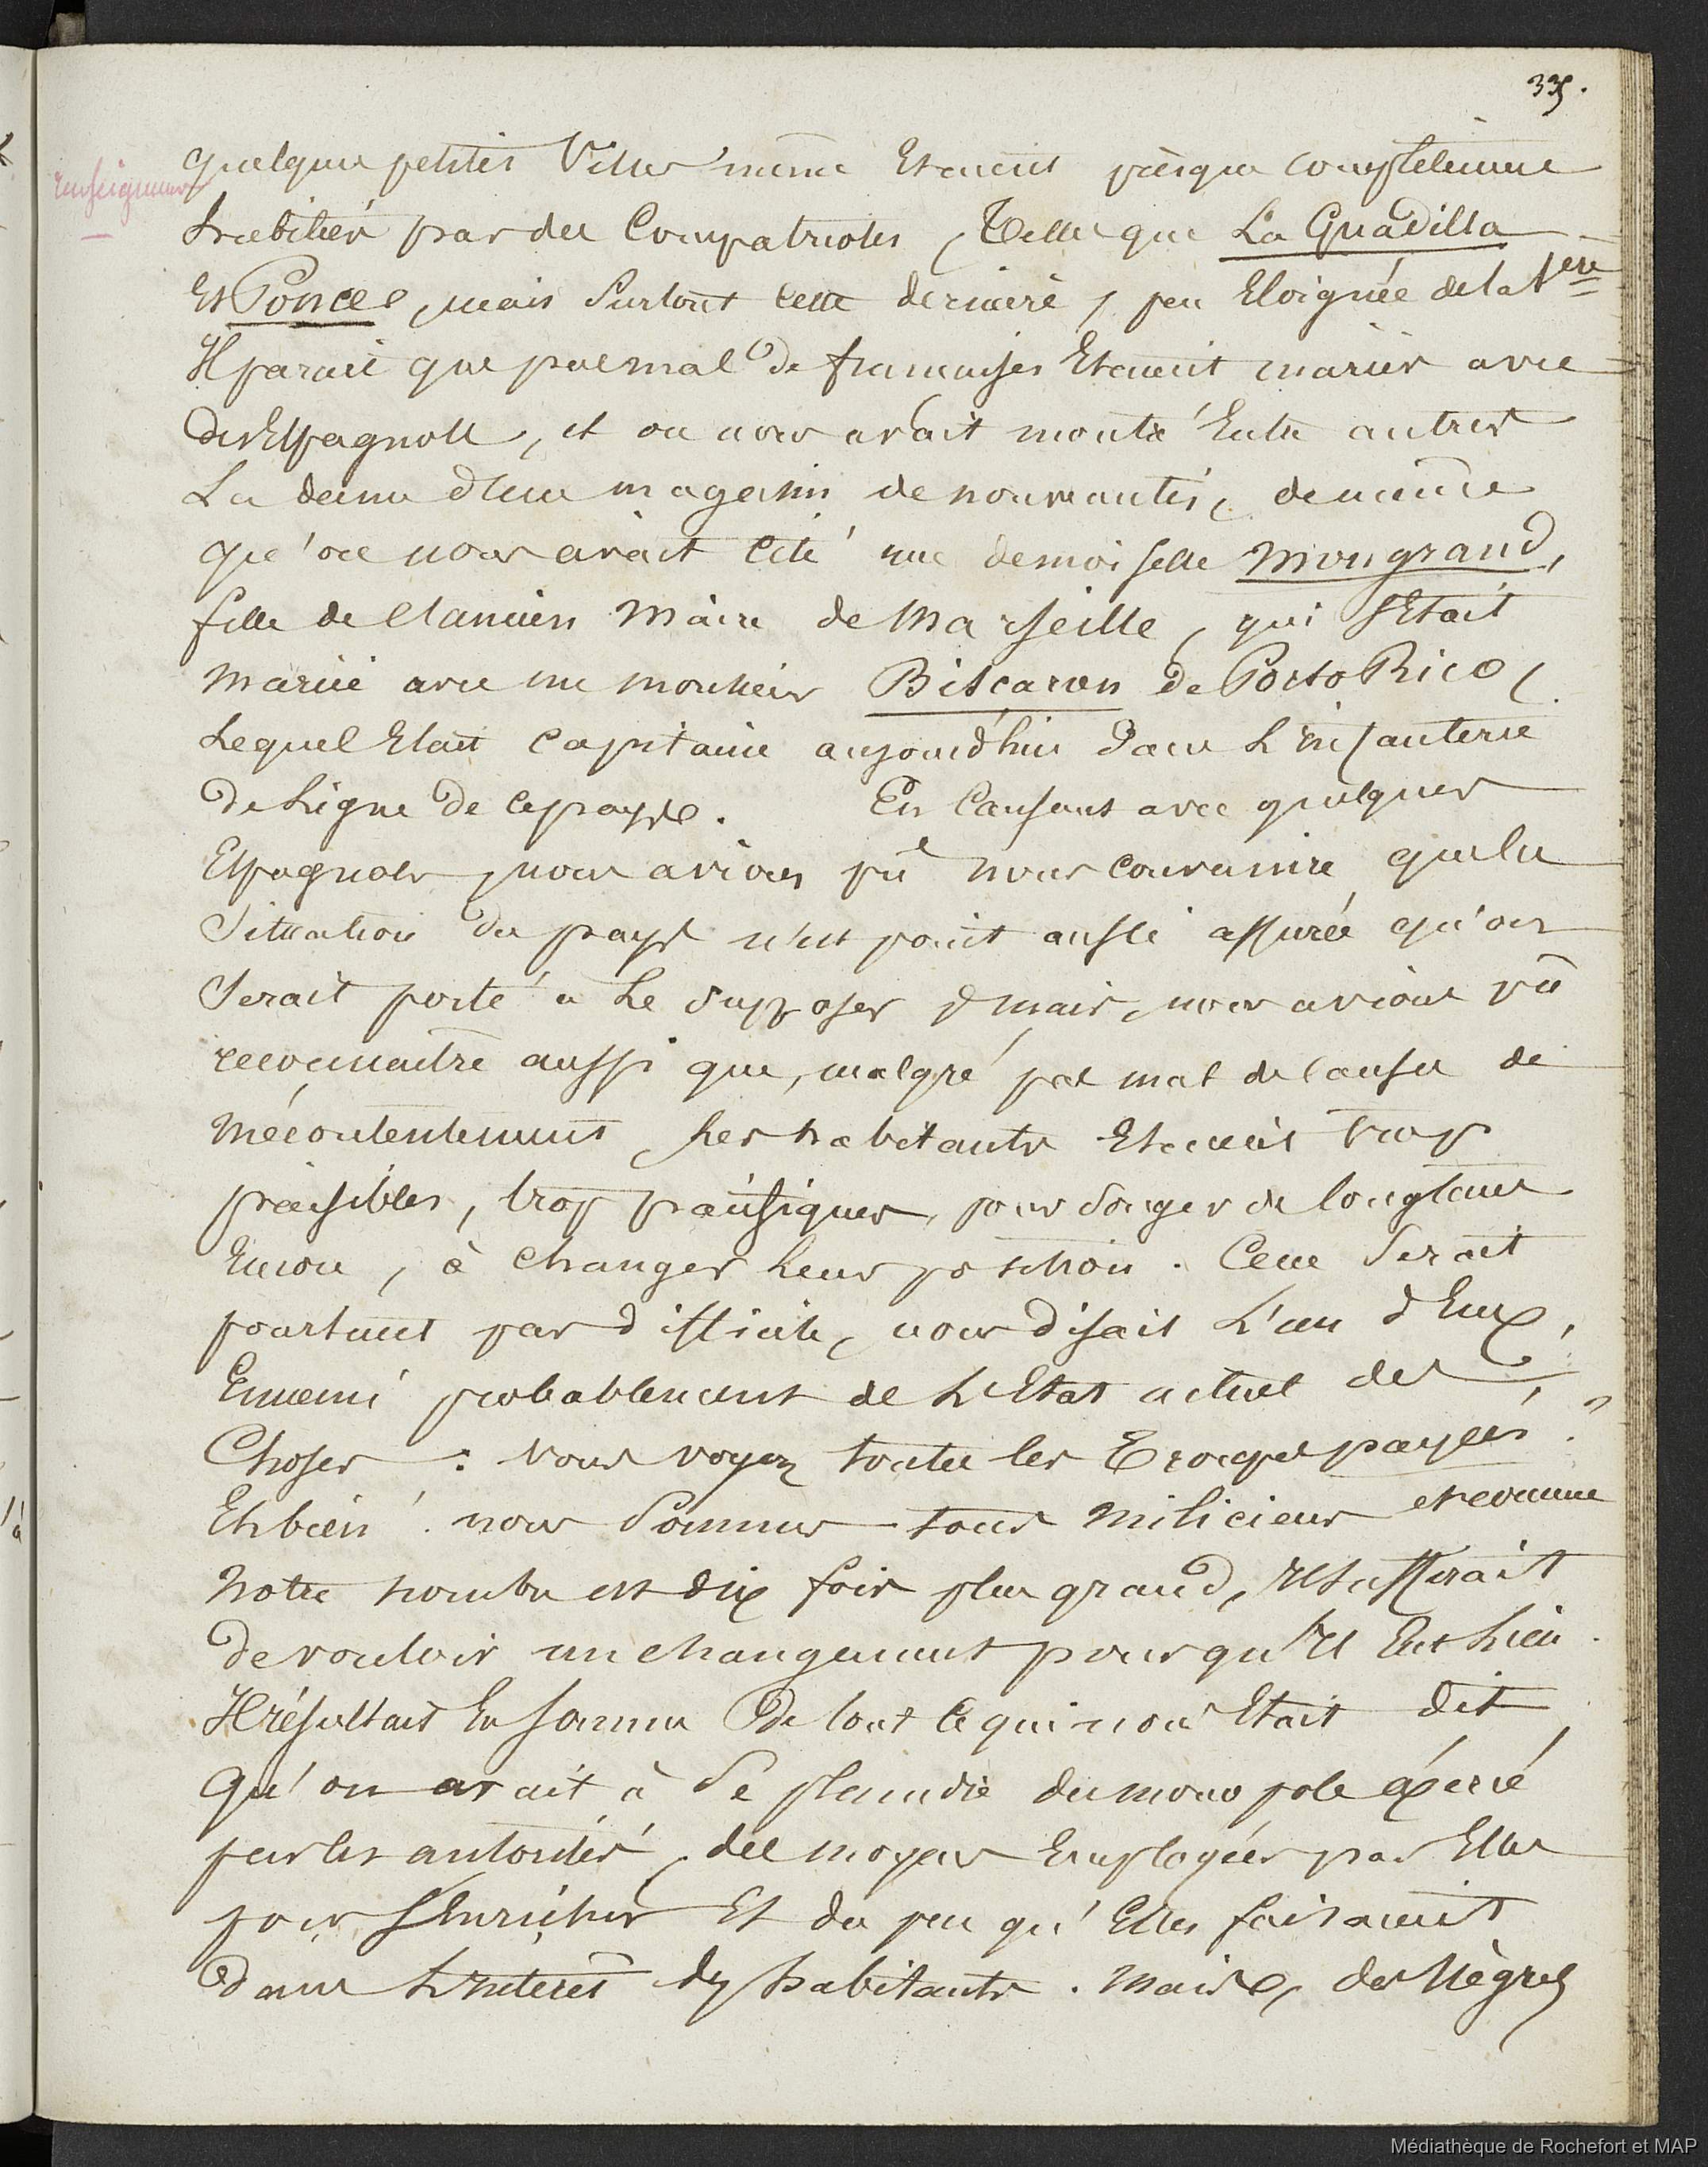 335.
Renseignemens
quelques petites Villes même Etaient presque complètement
habitées par des Compatriotes, Telles que La Guadilla
Et Ponce, mais Surtout cette dernière, peu Eloignée de la 1ere
Il parait que pas mal de françaises Etaient mariées avec
des Espagnols, et on nous avait montré Entre autres
La dame d'un magasin de nouveautés, de même
qu'on nous avait Cité une demoiselle Mongrand,
fille de l'ancien Maire de Marseille, qui S'Etait
Mariée avec un monsieur Biscaron de Porto Rico,
Lequel Etait Capitaine aujourd'hui dans L'infanterie
De Ligne de ce pays. En Causant avec quelques
Espagnols, nous avions pû nous convaincre que la
Situation du pays n'est point aussi assurée qu'on
Serait porté à Le Supposer, mais, nous avions pû
reconnaitre aussi que, malgré pas mal de Causes de
Mécontentement, Les habitants Etaient trop
paisibles, trop pacifiques, pour Songer de longtems
Encore, à Changer Leur position. Cene Serait
pourtant pas difficile, nous disait L'un d'Eux,
Ennemi probablement de L'Etat actuel des
Choses : Vous voyez toutes les Troupes payées ?
Eh bien ! nous Sommes tous Miliciens et comme
Notre nombre est dix fois plus grand, Il Suffirait
De vouloir un changement pour qu'Il Eut Lieu.
Il résultait En Somme De tout Ce qui nous Etait dit,
Qu'on avait à Se plaindre du monopole éxercé
par les autorités, des moyens Employés par Elles
pour S'Enrichir Et du peu qu'Elles faisaient
Dans L'Intérêt des habitants. Mais, des Nègres
Médiathèque de Rochefort et MAP